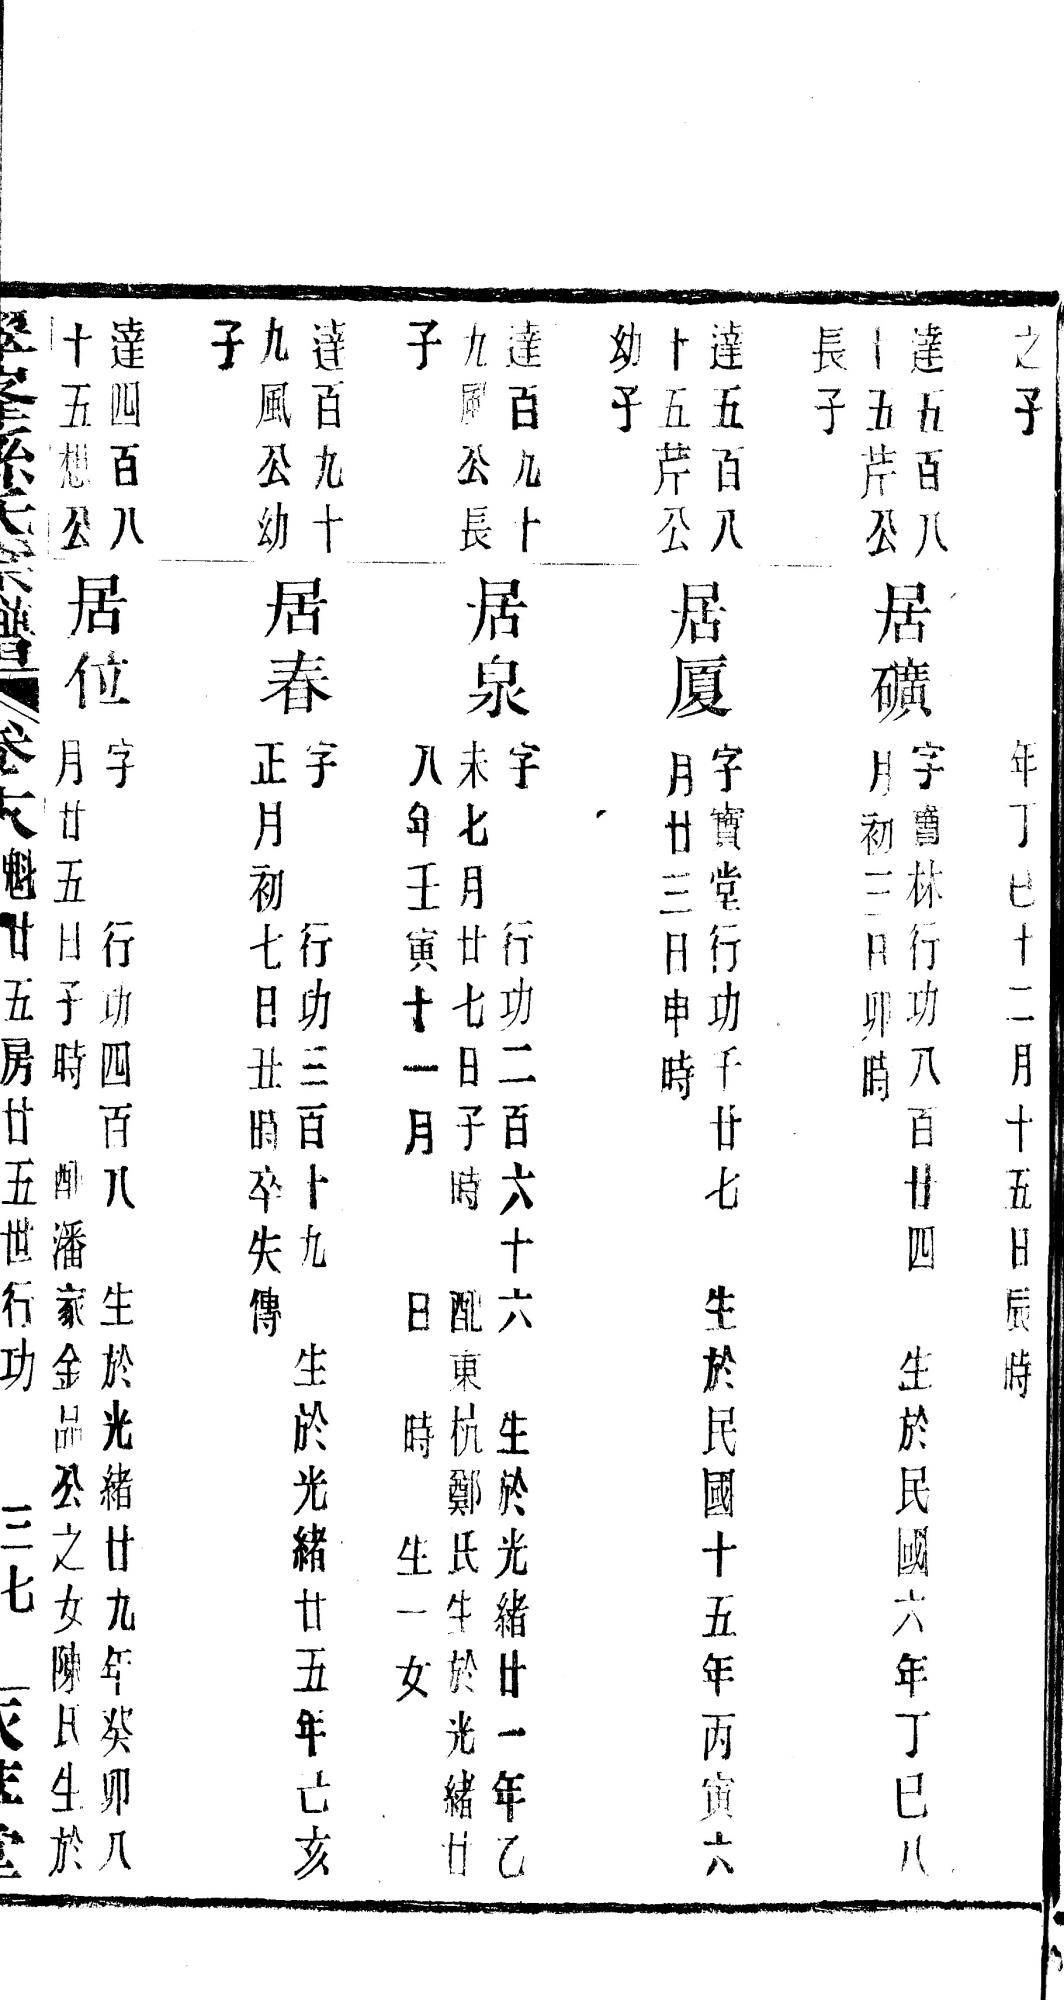 之子
年丁巳十二月十五日辰時
達五百八
十五芹公
長子
居礦
字寶林行功八百廿四　生於民國六年丁巳八
月初三日卯時
達五百八
十五芹公
幼子
居厦
字寶堂行功千廿七　生於民國十五年丙寅六
月廿三日申時
達百九十
九風公長
子
居泉
字　行功二百六十六　生於光緒廿一年乙
未七月廿七日子時　配東杭鄭氏生於光緒廿
八年壬寅十一月　日　時　生一女
達百九十
九風公幼
子
居春
字　行功三百十九　生於光緒廿五年亡亥
正月初七日丑時卒失傳
達四百八
十五想公
居位
字　行功四百八　生於光緒廿九年癸卯八
月廿五日子時　配潘家金品公之女陳氏生於
孫氏宗譜　魁廿五房廿五世行功　三七　堂